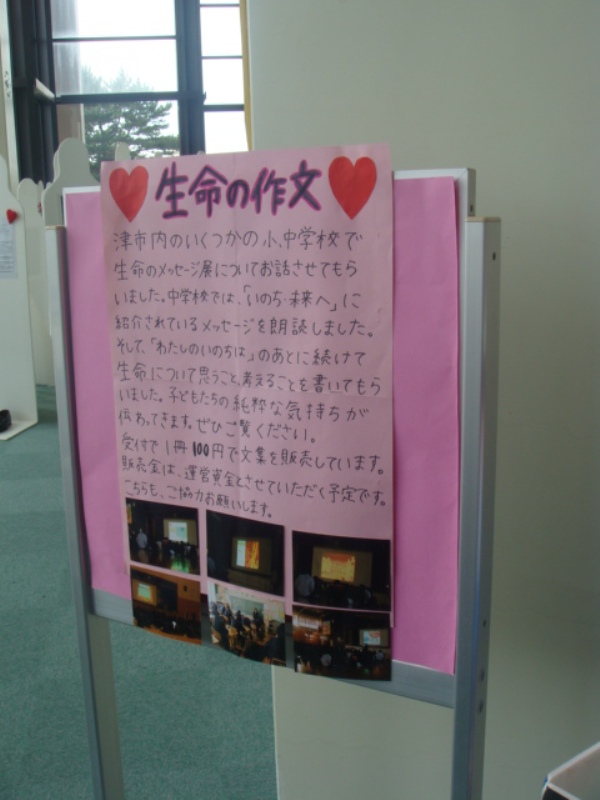 生命の作文
津市内のいくつかの小、中学校で
生命のメッセージ展についてお話させてもら
いました。中学校では、「いのち・未来へ」に
紹介されているメッセージを朗読しました。
そして、「わたしのいのちは」のあとに続けて
生命について思うこと、考えることを書いてもら
いました。子どもたちの純粋な気持ちが
伝わってきます。ぜひご覧ください。
受付で1冊100円で文集を販売しています。
販売金は、運営資金とさせていただく予定です。
こちらも、ご協力お願いします。